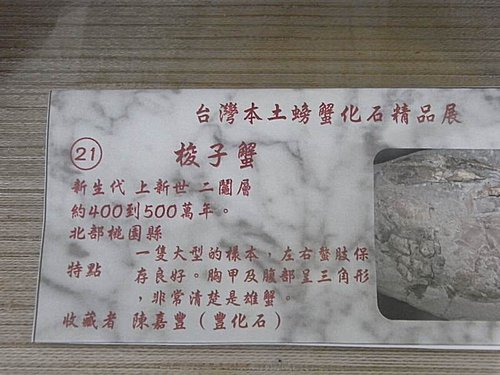 台灣本土螃蟹化石精品展
21 梭子蟹
新生代 上新世 二鬮層
約400到500萬年。
北部桃園縣
特點 一隻大型的樣本，左右螯肢保
存良好。胸甲及腹部呈三角形
，非常清楚是雄蟹。
收藏者 陳嘉豐（豐化石）